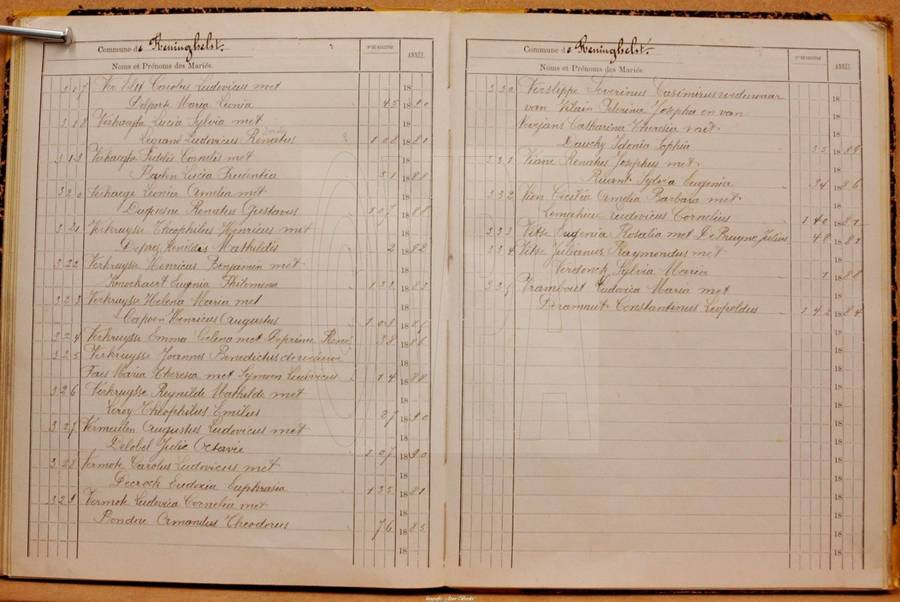 Commune de Reninghelst.
Noms et Prénoms des Mariés.
N° DU REGISTRE
ANNÉE
317 Ver Elst Carolus Ludovicus met
Delporte Maria Leonia 45 1890
318 Verhaeghe Lucia Sylvia met
Legrand Ludovicus Renatus 108 1881
319 Verhaeghe Fidelis Cornelis met
Lucia Prudentia 51 1888
320 Verhaege Leonia Amelia met
Duquesne Renatus Gustavus 107 1888
321 Verkruysse Theophilus Henricus met
Deprez Renildis Mathildis 2 1882
322 Verkruysse Henricus Benjamin met
Knockaert Eugenia Philomena 133 1883
323 Verkruysse Helena Maria met
Capoen Henricus Augustus 108 1885
324 Verkruysse Emma Celena met Deprine René 38 1886
325 Verkruysse Joannes Benedictus
Maria Theresia met Symoen Ludovicus 14 1888
326 Verkruysse Reynilde Mathilde met
Leroy Theophilus Emilius 27 1890
327 Vermeulen Augustus Ludovicus met
Delobel Julie Octavie 107 1890
328 Vermote Carolus Ludovicus met
Decrock Eudoxia Euphrasia 135 1881
329 Vermote Ludovica Cornelia met
Bondue Armandus Theodorus 76 1885
Commune de Reninghelst.
Noms et Prénoms des Mariés.
N° DU REGISTRE
ANNÉE
330 Verslippe Severinus Casimirus weduwaar
van Vilain Pelerina Josepha en van
Verjans Catharina Theresia met
Dauchy Idonia Sophia 55 1889
331 Viane Renatus Josephus met
Ruant Sylvia Eugenia 34 1886
332 Vion Cecilia Amelia Barbara met
Lemahieu Ludovicus Cornelius 140 1887
333 Vitse Eugenia Rosalia met De Bruyne Julius 48 1882
334 Vitse Julianus Raymondus met
Versterck Sylvia Maria 1 1888
335 Vrambout Ludovica Maria met
Deramaut Constantinus Leopoldus 142 1884